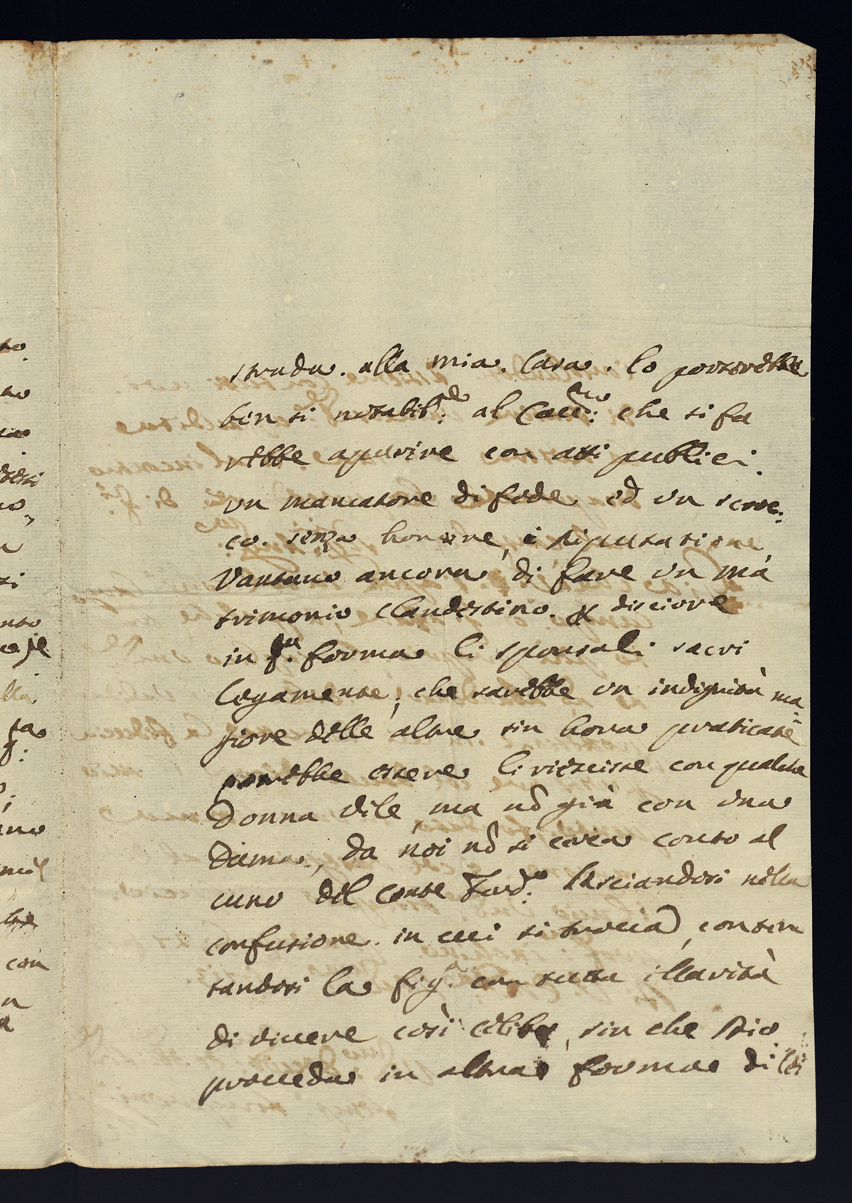 strada. alla mia. Casa. lo porterebbe
ben si notabil^do: al Cacc^ro: che si fa
rebbe aparire con atti publici.
un mancatore di fede ed un
co. senza honore, è riputatione
Vantano ancora, di fare un ma
trimonio Clandestino. & disciore
in q^ta: forma li sponsali sacri
legamente; che sarebbe un indignità ma
giore delle altre sin hora praticate
potrebbe essere li riescisse con qualche
Donna vile, ma nõ già con una
Dama, da noi nõ si cerca conto al
cuno del Conte Ferd^o: lasciandosi nella
confusione. in cui si trova, conten
tandosi la fig^a: con tutta illarità
di vivere così celibe, sin che Iddio
proceda in altra forma di lei